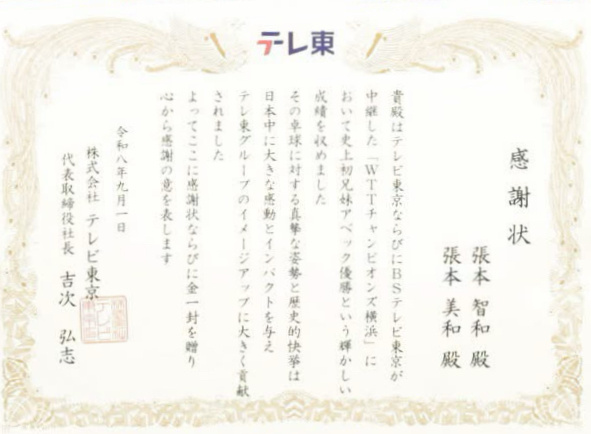 テレ東
感謝状
張本 智和 殿
張本 美和 殿
貴殿はテレビ東京ならびにBSテレビ東京が
中継した「WTTチャンピオンズ横浜」に
おいて史上初兄妹アベック優勝という輝かしい
成績を収めました
その卓球に対する真摯な姿勢と歴史的快挙は
日本中に大きな感動とインパクトを与え
テレ東グループのイメージアップに大きく貢献
されました
よってここに感謝状ならびに金一封を贈り
心から感謝の意を表します
令和八年九月一日
株式会社 テレビ東京
代表取締役社長 吉次 弘志